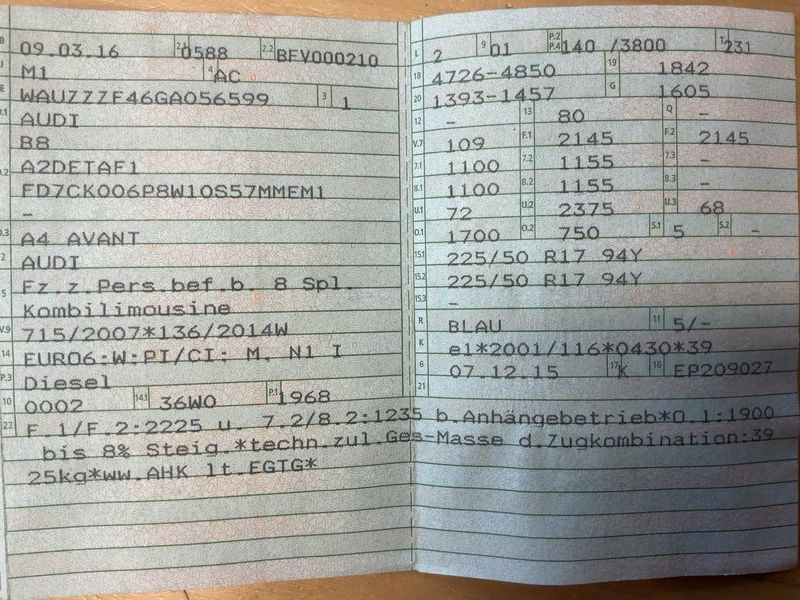 B 09.03.16 2.1 0588 2.2 BFV000210
J M1 4 AC
E WAUZZZF46GA056599 3 1
D.1 AUDI
B8
D.2 A2DETAF1
FD7CK006P8W10S57MMEM1
–
D.3 A4 AVANT
2 AUDI
5 Fz.z.Pers.bef.b. 8 Spl.
Kombilimousine
V.9 715/2007*136/2014W
14 EURO6;W;PI/CI; M, N1 I
P.3 Diesel
10 0002 14.1 36W0 P.1 1968
L 2 9 01 P.2 P.4 140 /3800 T 231
18 4726-4850 19 1842
20 1393-1457 G 1605
12 – 13 80 Q –
V.7 109 F.1 2145 F.2 2145
7.1 1100 7.2 1155 7.3 –
8.1 1100 8.2 1155 8.3 –
U.1 72 U.2 2375 U.3 68
O.1 1700 O.2 750 S.1 5 S.2 –
15.1 225/50 R17 94Y
15.2 225/50 R17 94Y
15.3 –
R BLAU 11 5/–
K e1*2001/116*0430*39
6 07.12.15 17 K 16 EP209027
21
22 F.1/F.2:2225 u. 7.2/8.2:1235 b.Anhängebetrieb*O.1:1900
bis 8% Steig.*techn.zul.Ges-Masse d.Zugkombination:39
25kg*ww.AHK lt.EGTG*